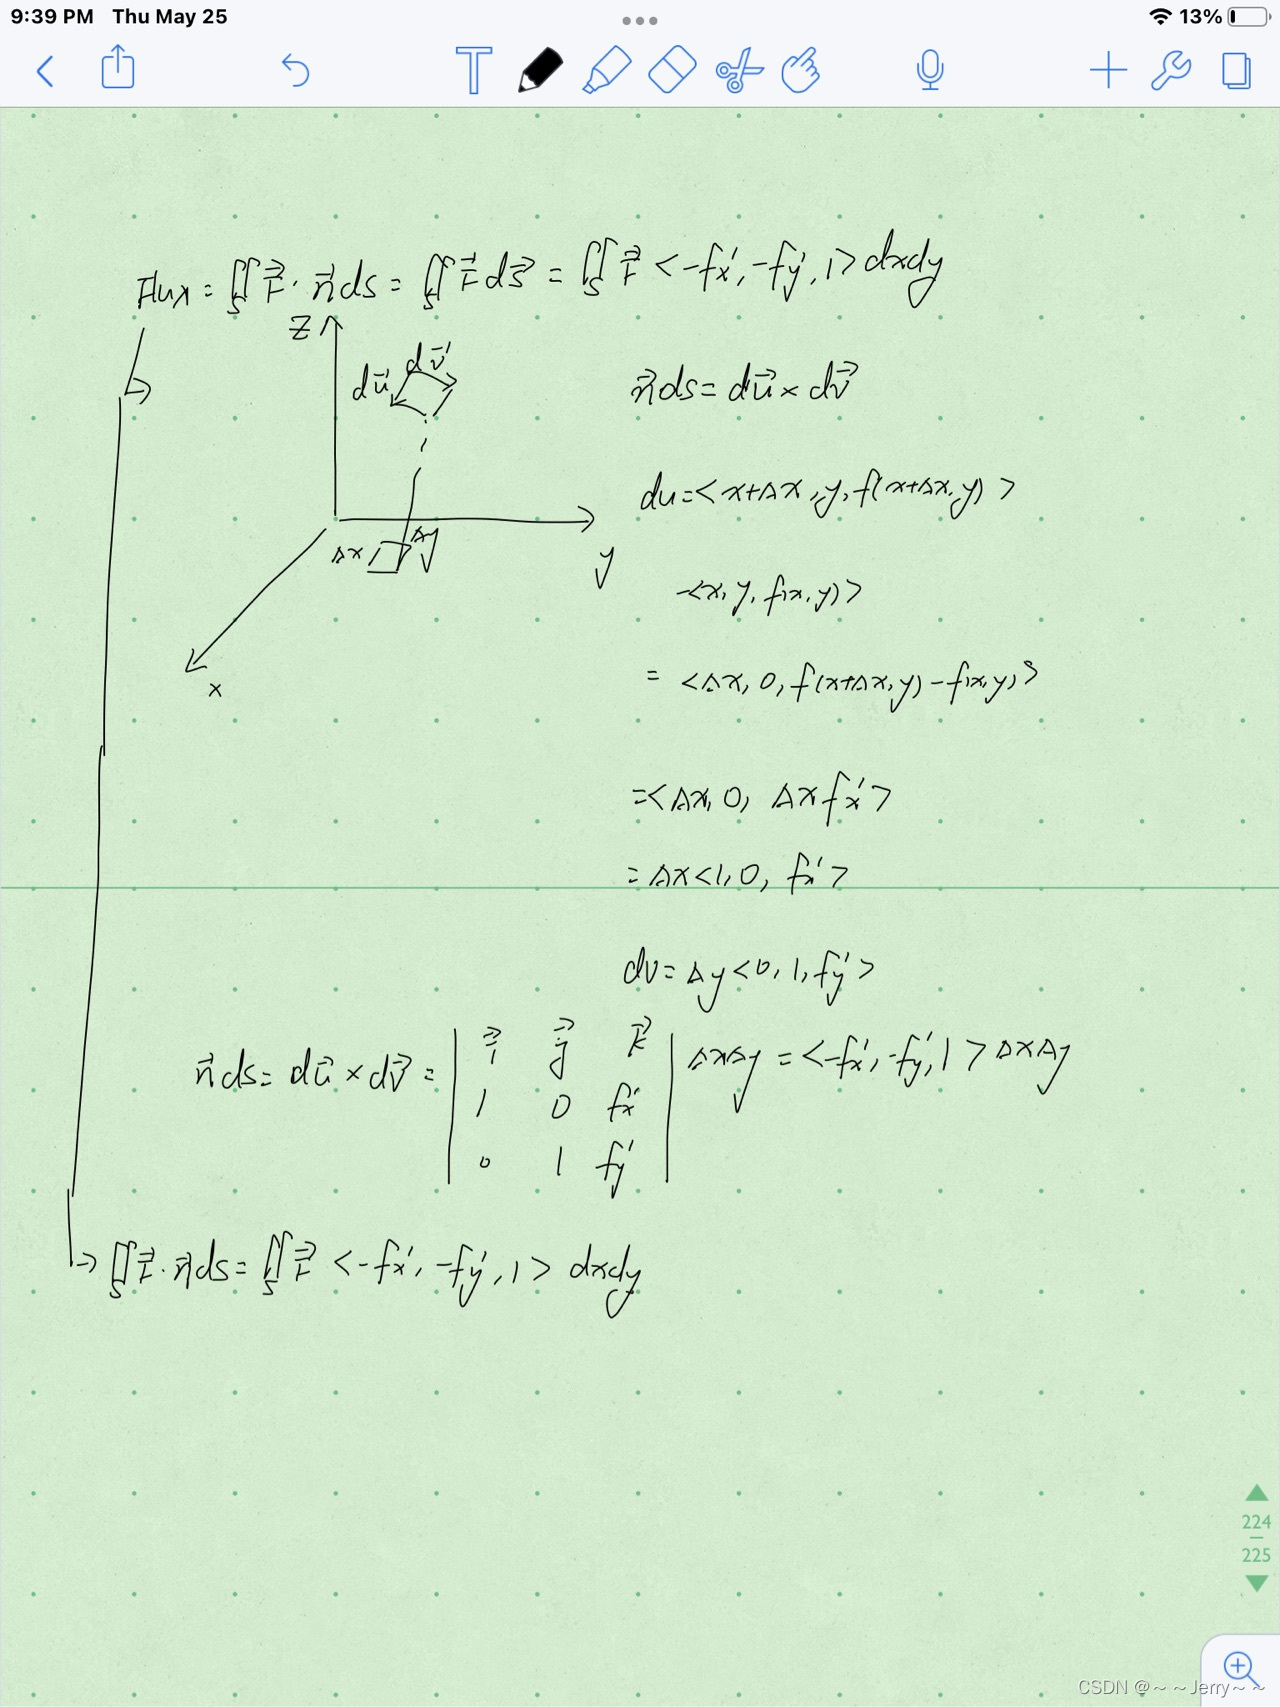 9:39 PM Thu May 25
13%
T
Flux = ∬_S F⃗ · n⃗ ds = ∬_S F⃗ ds⃗ = ∬_S F⃗ <-fx', -fy', 1> dxdy
z
du⃗ dv⃗
n⃗ds = du⃗ × dv⃗
du = <x+Δx, y, f(x+Δx, y)>
Δx Δy
y
-<x, y, f(x, y)>
x
= <Δx, 0, f(x+Δx, y) - f(x, y)>
= <Δx, 0, Δx fx'>
= Δx <1, 0, fx'>
dv = Δy <0, 1, fy'>
n⃗ds = du⃗ × dv⃗ = | i⃗ j⃗ k⃗ | ΔxΔy = <-fx', -fy', 1> ΔxΔy
1 0 fx'
0 1 fy'
∬_S F⃗ · n⃗ds = ∬_S F⃗ <-fx', -fy', 1> dxdy
224
225
CSDN @~~Jerry~~